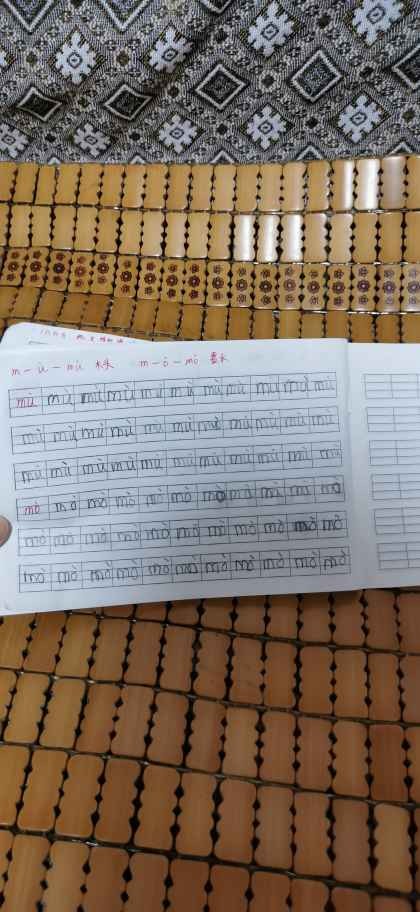 m — ù — mù 木头 m — ò — mò 墨水
mù mù mù mù mù mù mù mù mù mù mù
mù mù mù mù mù mù mù mù mù mù mù
mù mù mù mù mù mù mù mù mù mù mù
mò mò mò mò mò mò mò mò mù mù mò
mò mò mò mò mò mò mò mò mò mò mò
mò mò mò mò mò mò mò mò mò mò mò